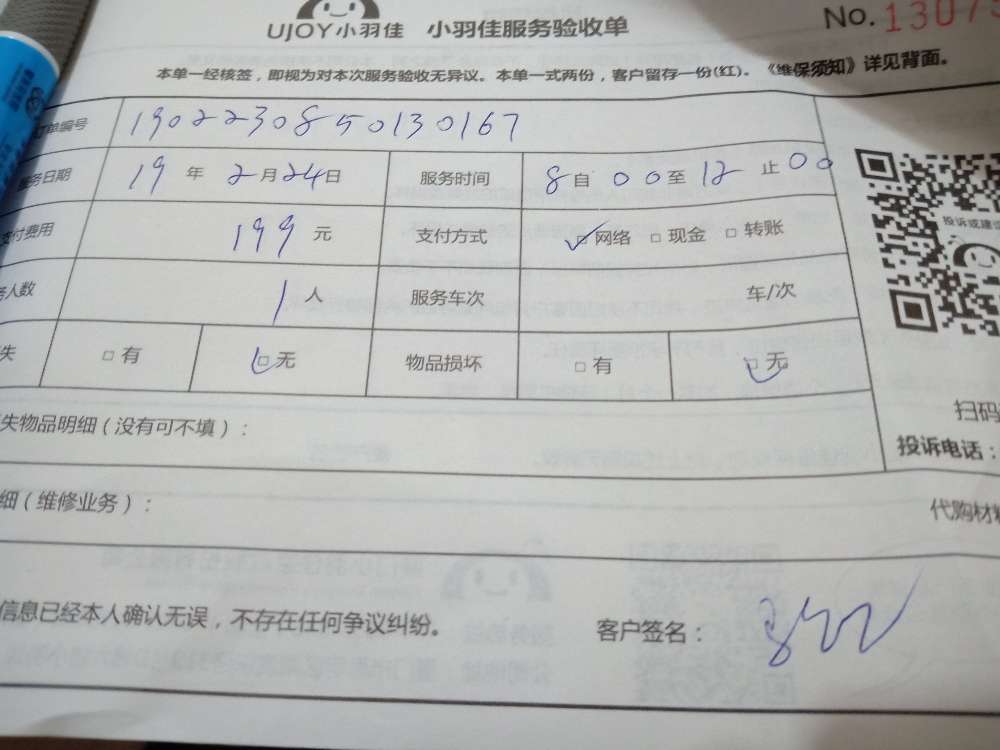 UJOY小羽佳 小羽佳服务验收单 No.1307
本单一经核签，即视为对本次服务验收无异议。本单一式两份，客户留存一份(红)。《维保须知》详见背面。
订单编号 1902230850130167
服务日期 19年2月24日 服务时间 8自00至12止00
支付费用 199元 支付方式 □网络 □现金 □转账
务人数 1人 服务车次 车/次
失 □有 □无 物品损坏 □有 □无
投诉或建议
扫码
投诉电话：
失物品明细（没有可不填）：
细（维修业务）： 代购材料
信息已经本人确认无误，不存在任何争议纠纷。 客户签名：